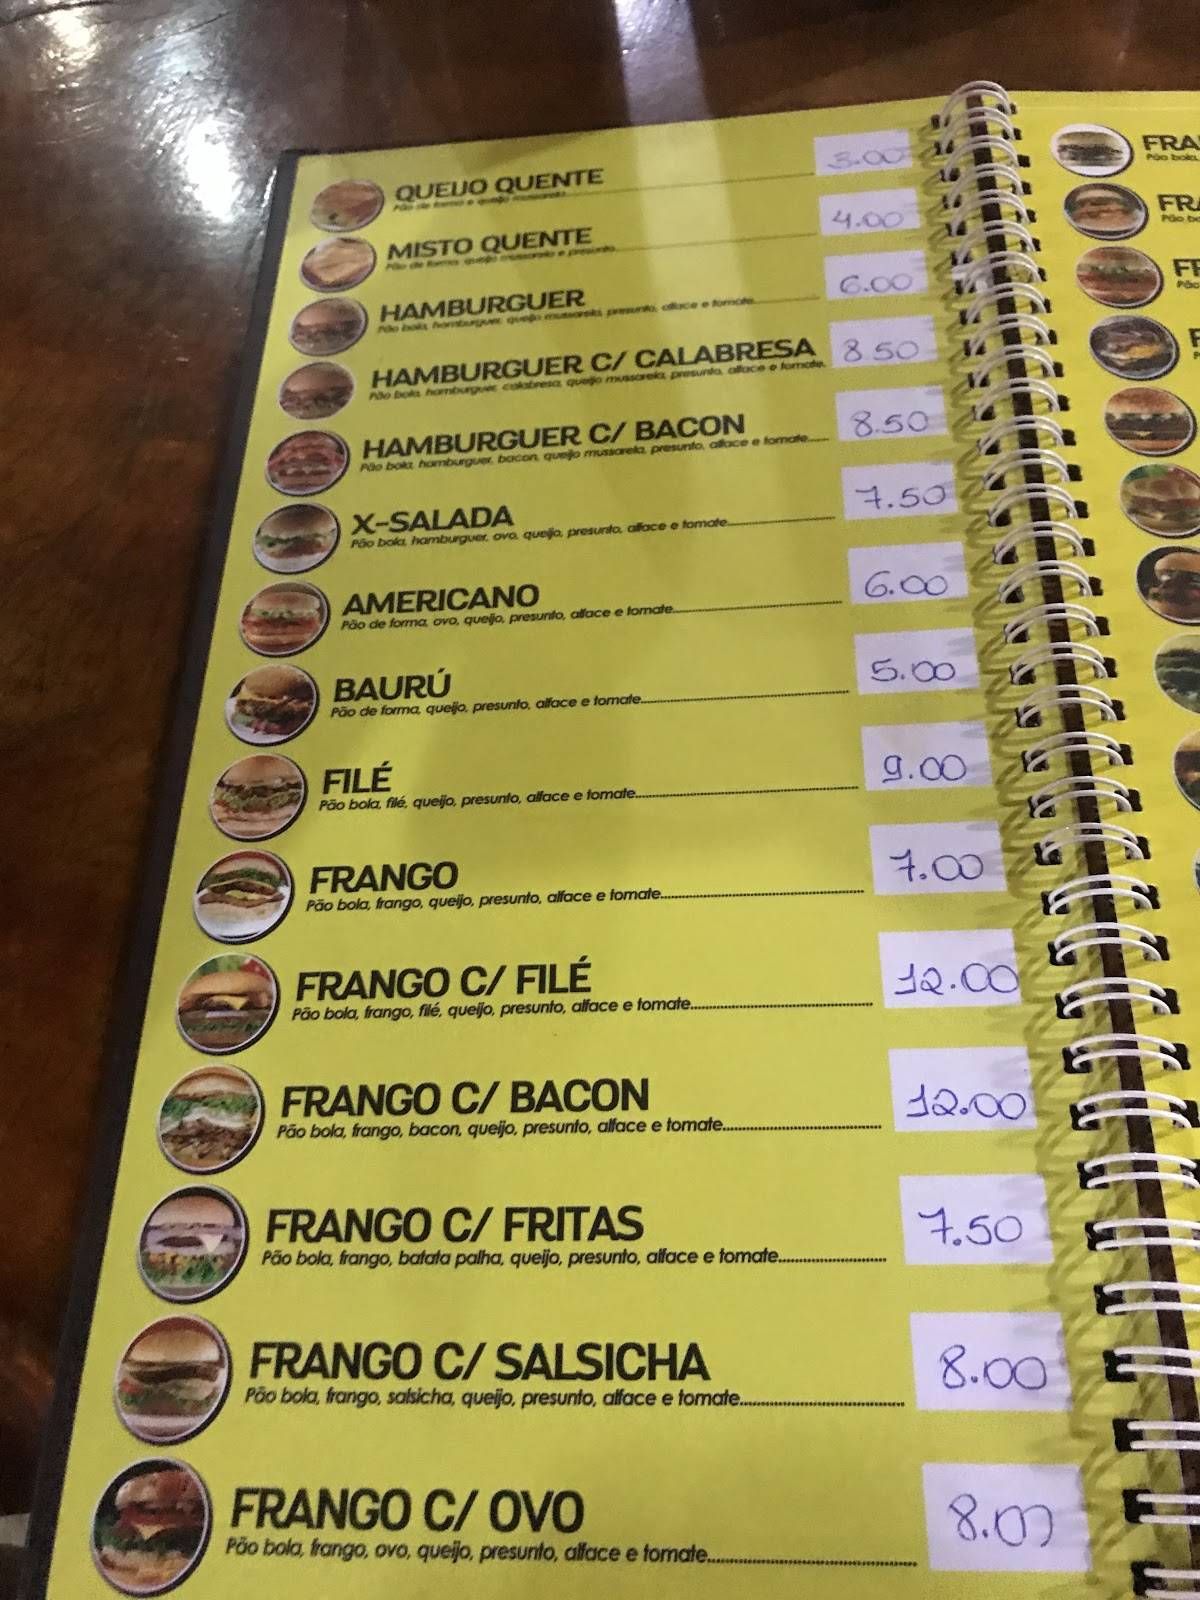 QUEIJO QUENTE 3.00
Pão de forma e queijo mussarela
MISTO QUENTE 4.00
Pão de forma, queijo mussarela e presunto
HAMBURGUER 6.00
Pão bola, hamburguer, queijo mussarela, presunto, alface e tomate
HAMBURGUER C/ CALABRESA 8 50
Pão bola, hamburguer, calabresa, queijo mussarela, presunto, alface e tomate
HAMBURGUER C/ BACON 8.50
Pão bola, hamburguer, bacon, queijo mussarela, presunto, alface e tomate
X-SALADA 7.50
Pão bola, hamburguer, ovo, queijo, presunto, alface e tomate
AMERICANO 6.00
Pão de forma, ovo, queijo, presunto, alface e tomate
BAURÚ 5.00
Pão de forma, queijo, presunto, alface e tomate
FILÉ 9.00
Pão bola, filé, queijo, presunto, alface e tomate
FRANGO 7.00
Pão bola, frango, queijo, presunto, alface e tomate
FRANGO C/ FILÉ 12.00
Pão bola, frango, filé, queijo, presunto, alface e tomate
FRANGO C/ BACON 12.00
Pão bola, frango, bacon, queijo, presunto, alface e tomate
FRANGO C/ FRITAS 7.50
Pão bola, frango, batata palha, queijo, presunto, alface e tomate
FRANGO C/ SALSICHA 8.00
Pão bola, frango, salsicha, queijo, presunto, alface e tomate
FRANGO C/ OVO 8.00
Pão bola, frango, ovo, queijo, presunto, alface e tomate
FRA
Pão bola,
FRA
Pão bo
FR
Pão